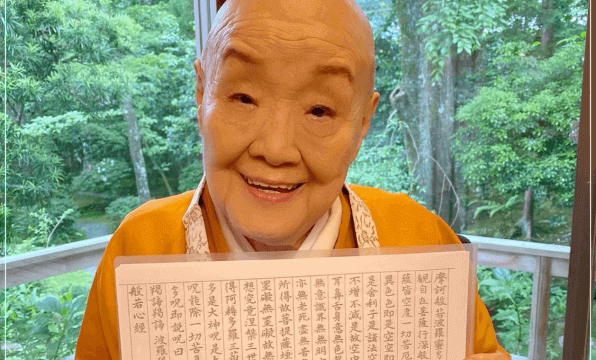 摩訶般若波羅蜜多
観自在菩薩行深
蘊皆空度一切苦厄
異色色即是空空即
是舎利子是諸法空
不増不減是故空
耳鼻舌身意無色
無意識界無無明
亦無老死盡無苦
所得故菩提薩埵
罣礙無罣礙故無
想究竟涅槃三世
得阿耨多羅三
多是大神呪是
呪能除一切苦
多呪即説呪曰
羯諦羯諦 波羅
般若心経